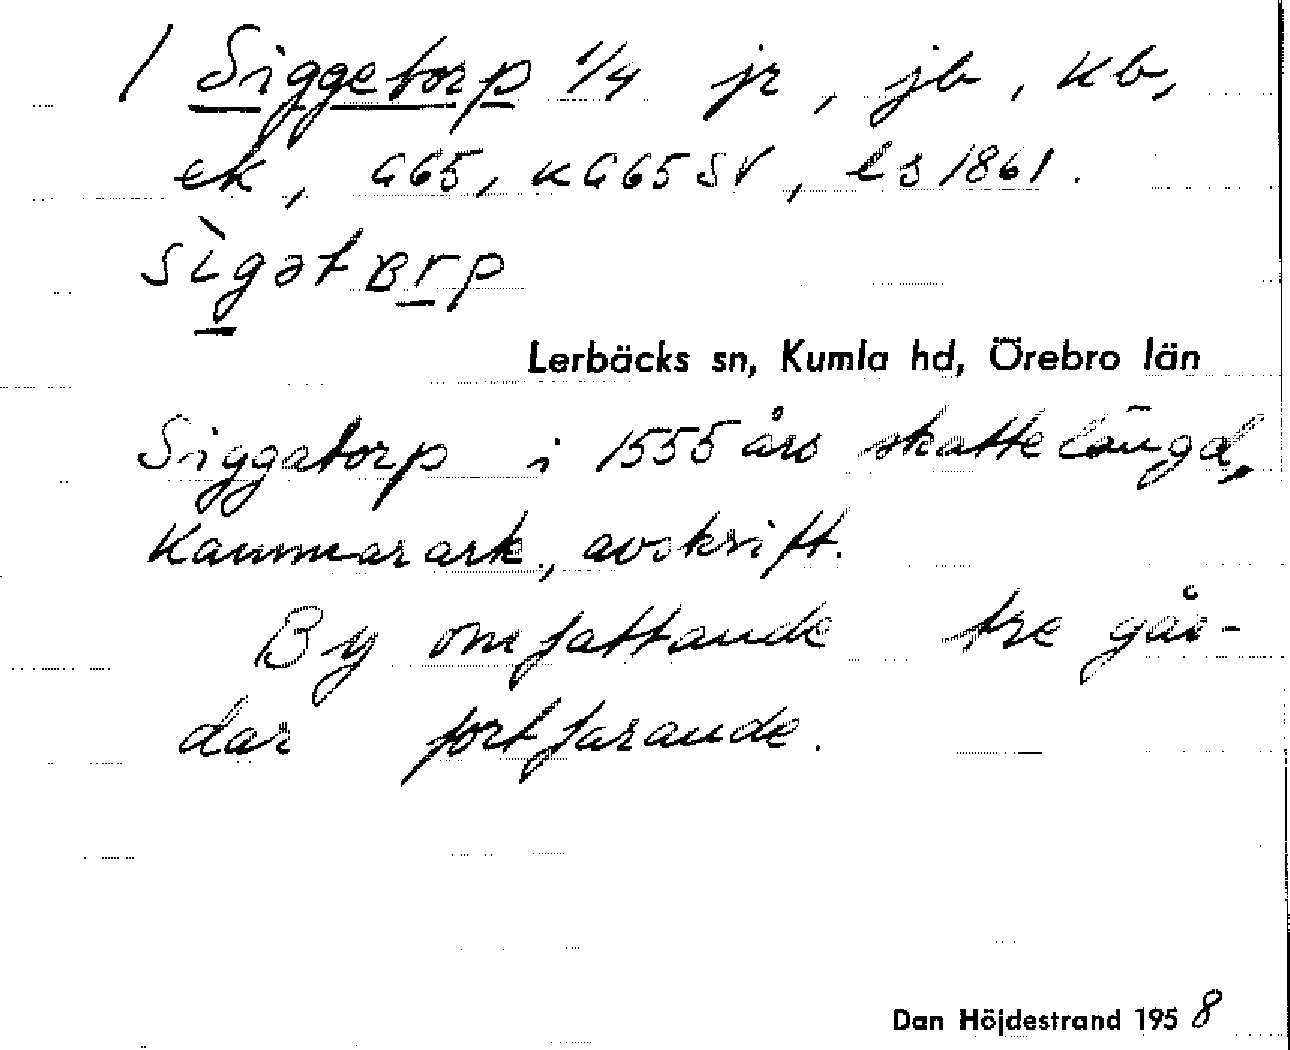 / Siggetorp 1/4 jr, jb, Kb,
ek, G65, KG65SV, ls 1861.
sìgətɐrp
Lerbäcks sn, Kumla hd, Örebro län
Siggatorp i 1555 års skattelängd,
Kammarark., avskrift.
By omfattande tre går-
dar fortfarande.
Dan Höjdestrand 1958